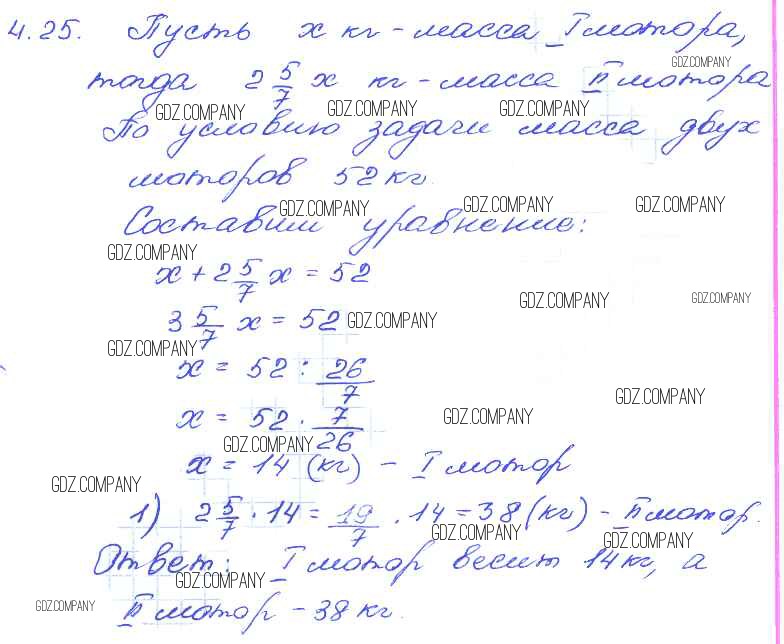 4.25. Пусть x кг - масса I мотора,
GDZ.COMPANY
тогда 2 5/7 x кг - масса II мотора
GDZ.COMPANY GDZ.COMPANY GDZ.COMPANY
По условию задачи масса двух
моторов 52 кг.
GDZ.COMPANY GDZ.COMPANY GDZ.COMPANY
Составим уравнение:
GDZ.COMPANY
x + 2 5/7 x = 52
GDZ.COMPANY GDZ.COMPANY
3 5/7 x = 52 GDZ.COMPANY
GDZ.COMPANY
x = 52 : 26/7
GDZ.COMPANY
x = 52 · 7/26
GDZ.COMPANY
GDZ.COMPANY
x = 14 (кг) - I мотор
GDZ.COMPANY
1) 2 5/7 · 14 = 19/7 · 14 = 38 (кг) - II мотор.
GDZ.COMPANY GDZ.COMPANY
Ответ: I мотор весит 14 кг, а
GDZ.COMPANY
II мотор - 38 кг.
GDZ.COMPANY